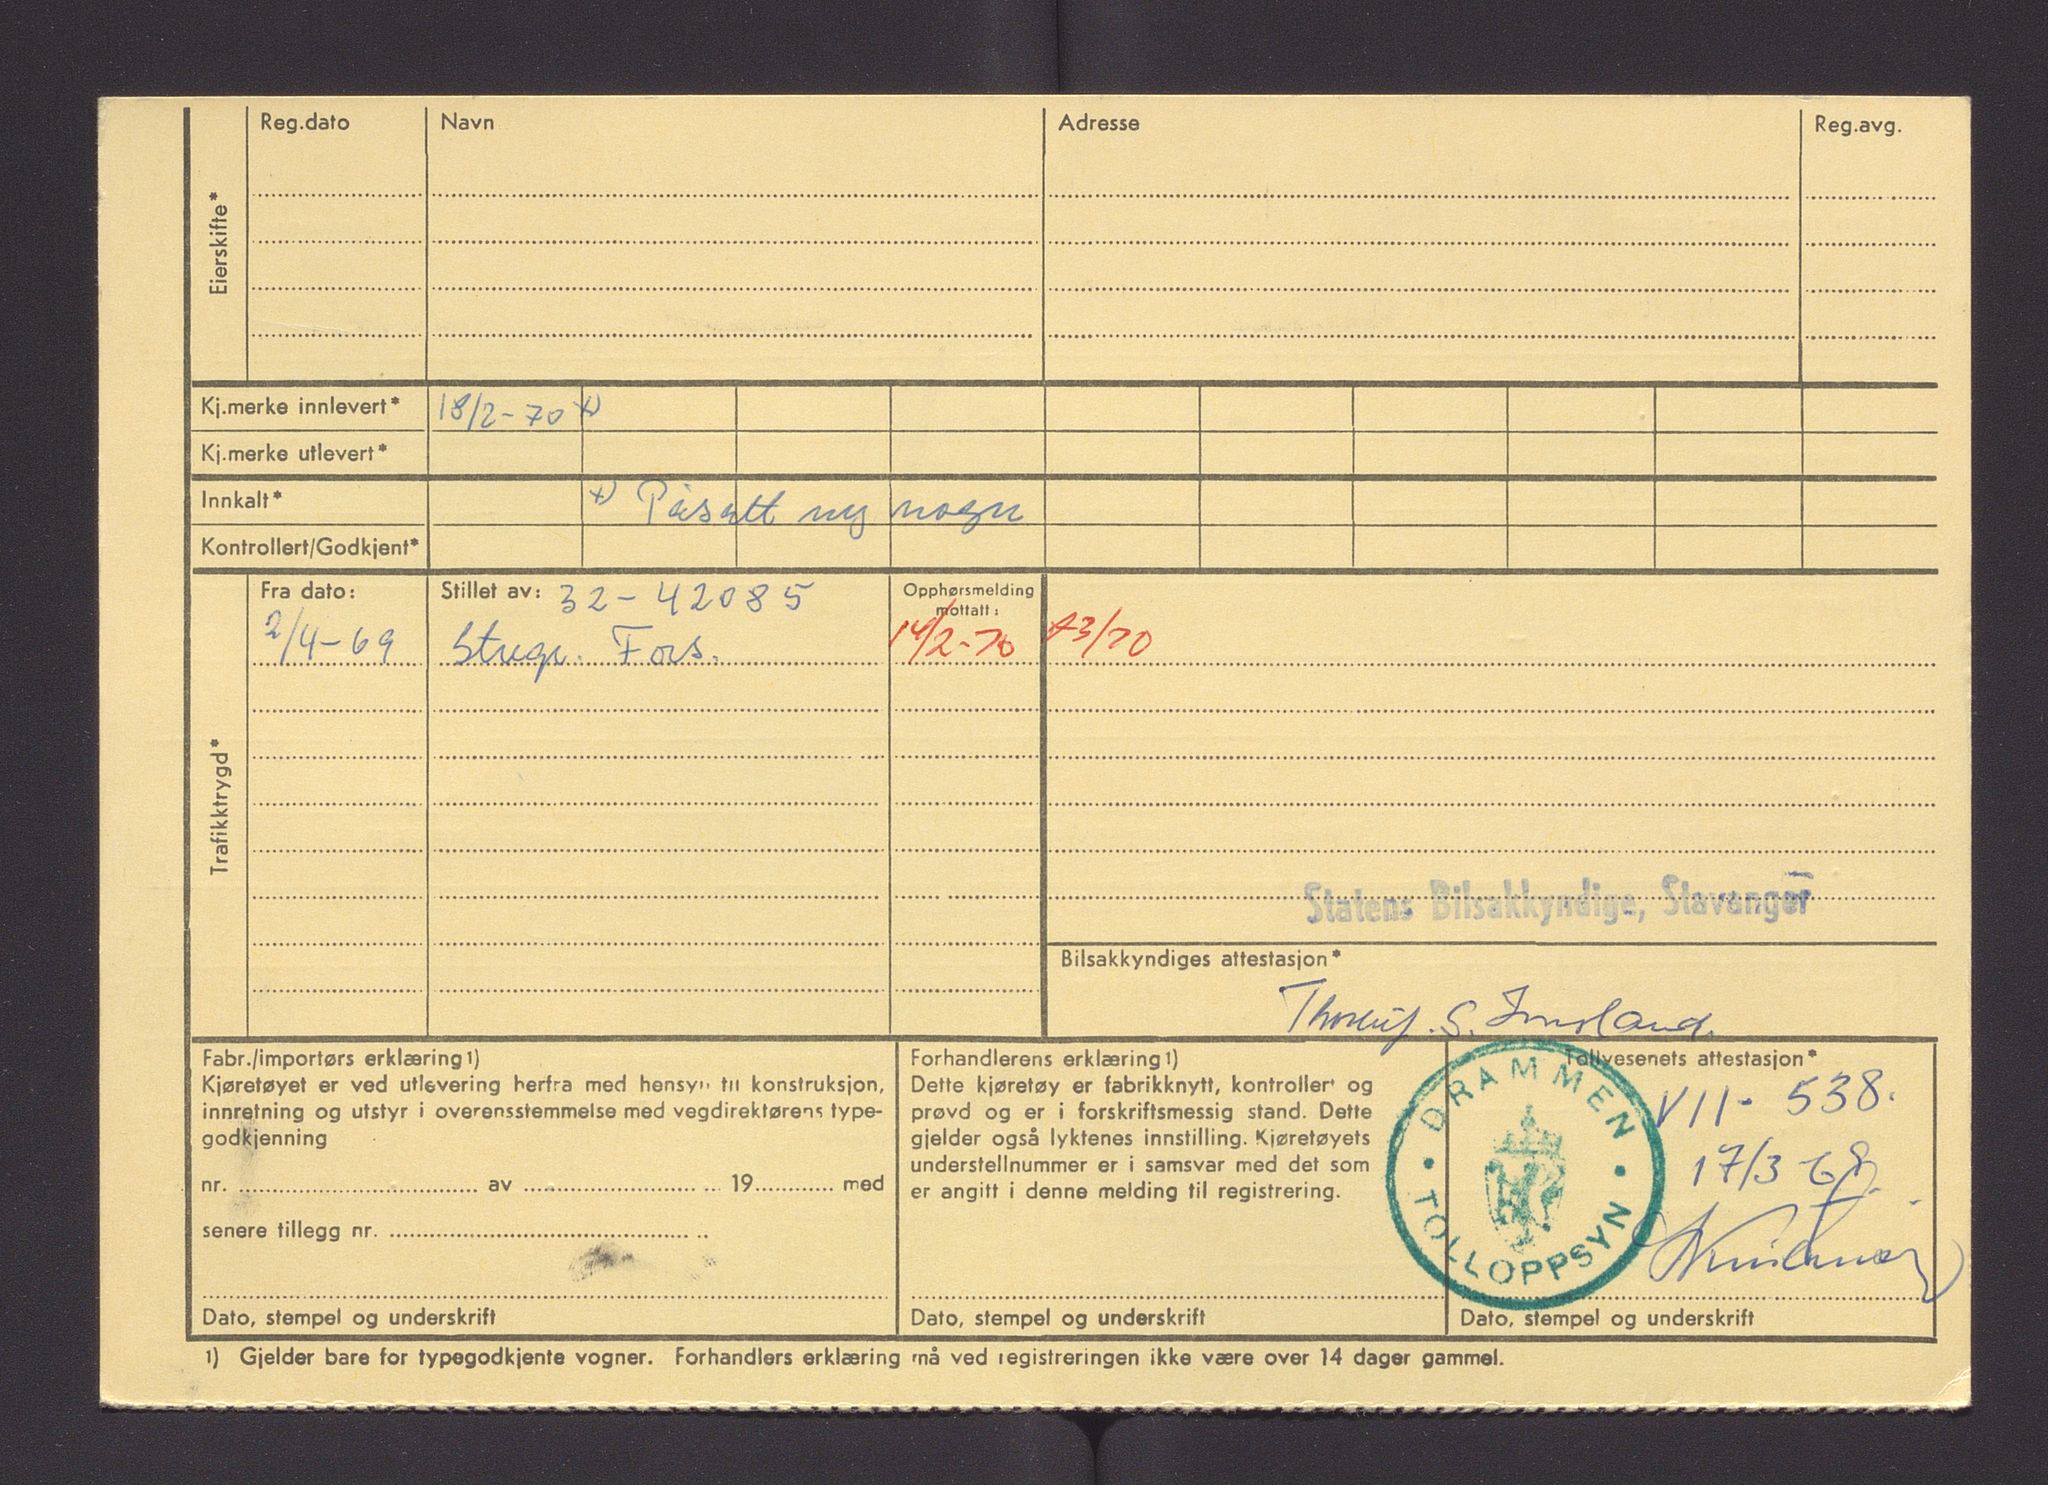 Reg.dato Navn Adresse Reg.avg.
Eierskifte*
Kj.merke innlevert* 18/2-70 x)
Kj.merke utlevert*
Innkalt* x) Påsatt ny vogn
Kontrollert/Godkjent*
Trafikktrygd*
Fra dato: Stillet av: 32-42085 Opphørsmelding mottatt:
2/4-69 Fors. 14/2-70 A3/70
Statens Bilsakkyndige, Stavanger
Bilsakkyndiges attestasjon*
S.
Fabr./importørs erklæring 1)
Kjøretøyet er ved utlevering herfra med hensyn til konstruksjon,
innretning og utstyr i overensstemmelse med vegdirektørens type-
godkjenning
nr. av 19 med
senere tillegg nr.
Dato, stempel og underskrift
Forhandlerens erklæring 1)
Dette kjøretøy er fabrikknytt, kontrollert og
prøvd og er i forskriftsmessig stand. Dette
gjelder også lyktenes innstilling. Kjøretøyets
understellnummer er i samsvar med det som
er angitt i denne melding til registrering.
Dato, stempel og underskrift
Tollvesenets attestasjon*
VII- 538.
17/3-69.
DRAMMEN
TOLLOPPSYN
Dato, stempel og underskrift
1) Gjelder bare for typegodkjente vogner. Forhandlers erklæring må ved registreringen ikke være over 14 dager gammel.